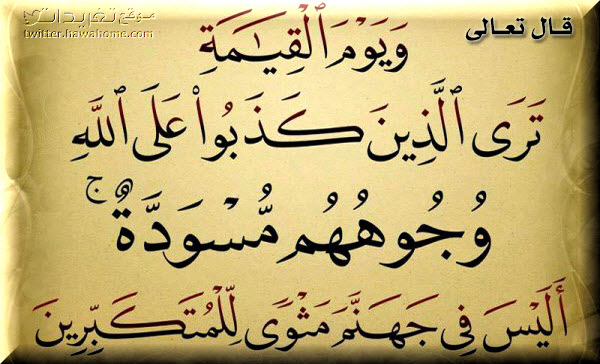 موقع تغريداتي
twitter.hawahome.com
قال تعالى
وَيَوْمَ ٱلْقِيَـٰمَةِ
تَرَى ٱلَّذِينَ كَذَبُوا۟ عَلَى ٱللَّهِ
وُجُوهُهُم مُّسْوَدَّةٌ ۚ
أَلَيْسَ فِى جَهَنَّمَ مَثْوًى لِّلْمُتَكَبِّرِينَ